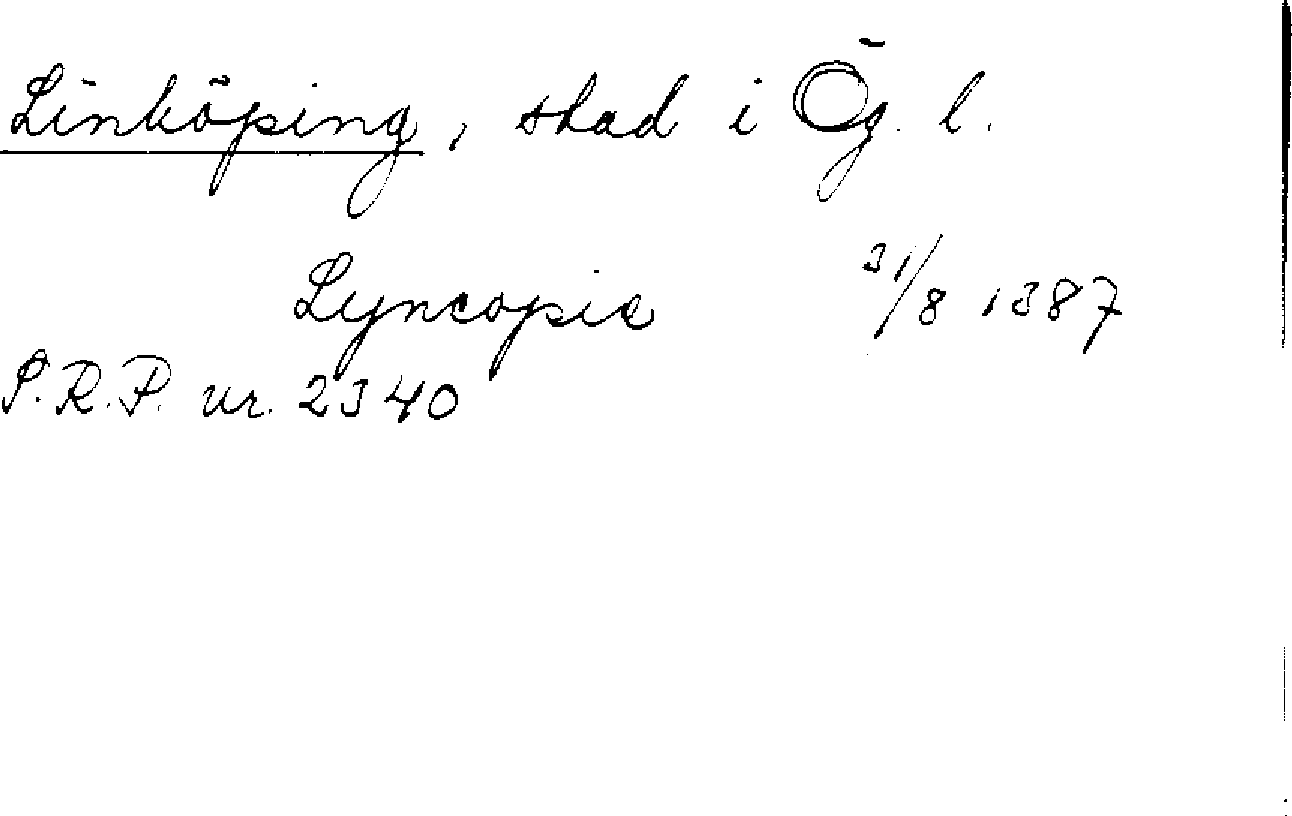 Linköping, stad i Ög. l.
Lyncopie 31/8 1387
S.R.P. nr. 2340